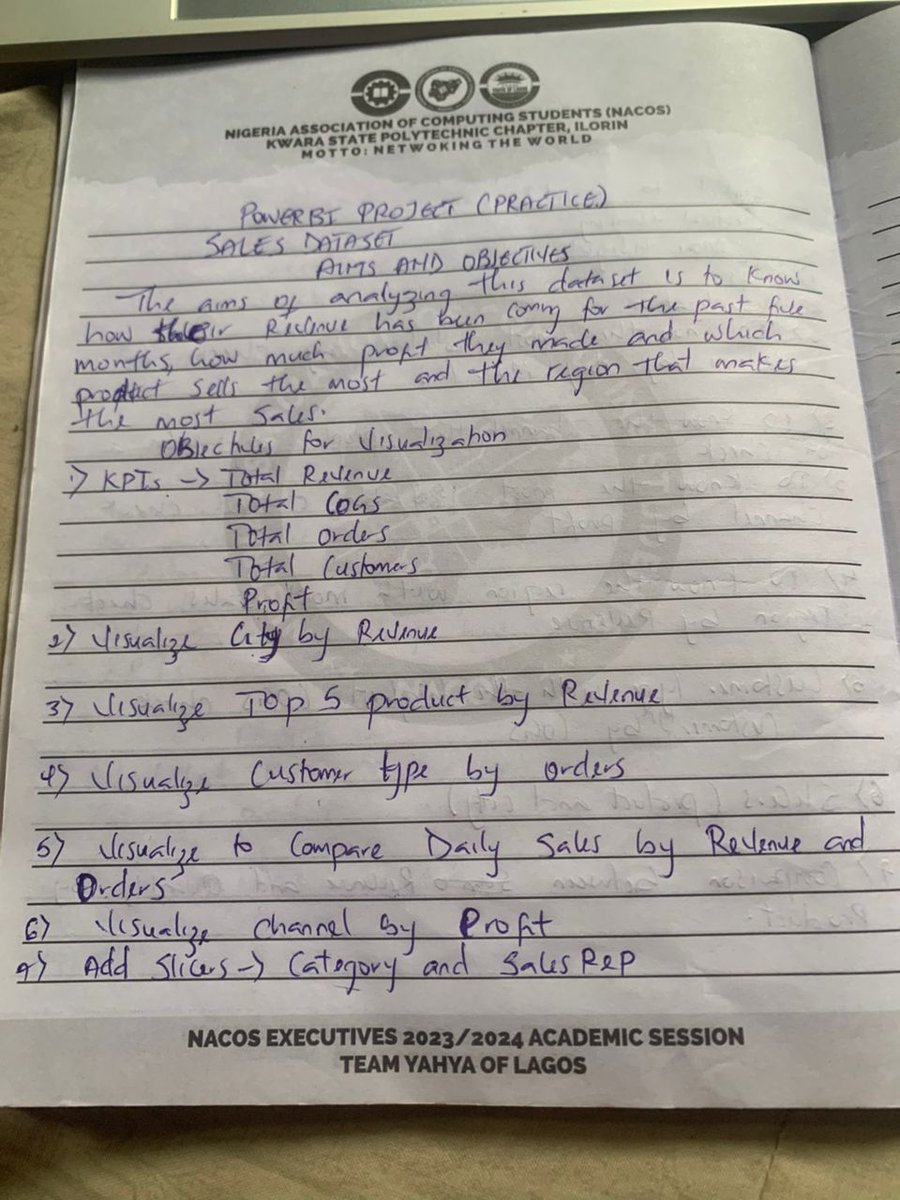 NIGERIA ASSOCIATION OF COMPUTING STUDENTS (NACOS)
KWARA STATE POLYTECHNIC CHAPTER, ILORIN
MOTTO: NETWOKING THE WORLD
POWERBI PROJECT (PRACTICE)
SALES DATASET
AIMS AND OBJECTIVES
The aims of analyzing this dataset is to know
how their Revenue has been coming for the past five
months, how much profit they made and which
product sells the most and the region that makes
the most sales.
Objectives for Visualization
1) KPIs → Total Revenue
Total COGS
Total orders
Total Customers
Profit
2) Visualize City by Revenue
3) Visualize Top 5 product by Revenue
4) Visualize Customer type by orders
5) Visualize to Compare Daily Sales by Revenue and
Orders
6) Visualize channel by Profit
7) Add Slicers → Category and Sales Rep
NACOS EXECUTIVES 2023/2024 ACADEMIC SESSION
TEAM YAHYA OF LAGOS